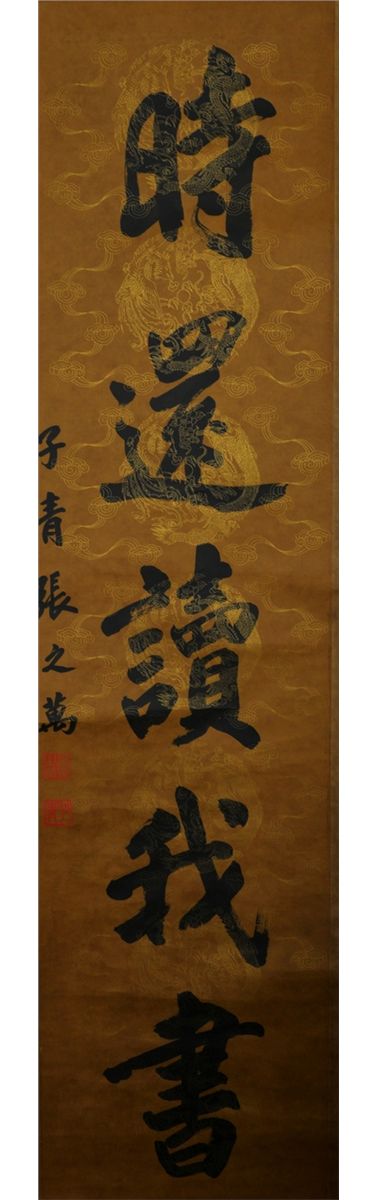 時還讀我書
子青張之萬